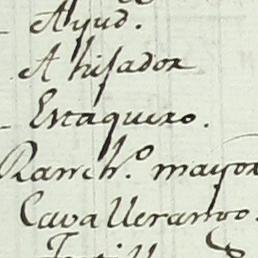 Ayud.
Ahijador
Estaquero.
Ranch.º mayor
Cavallerango.